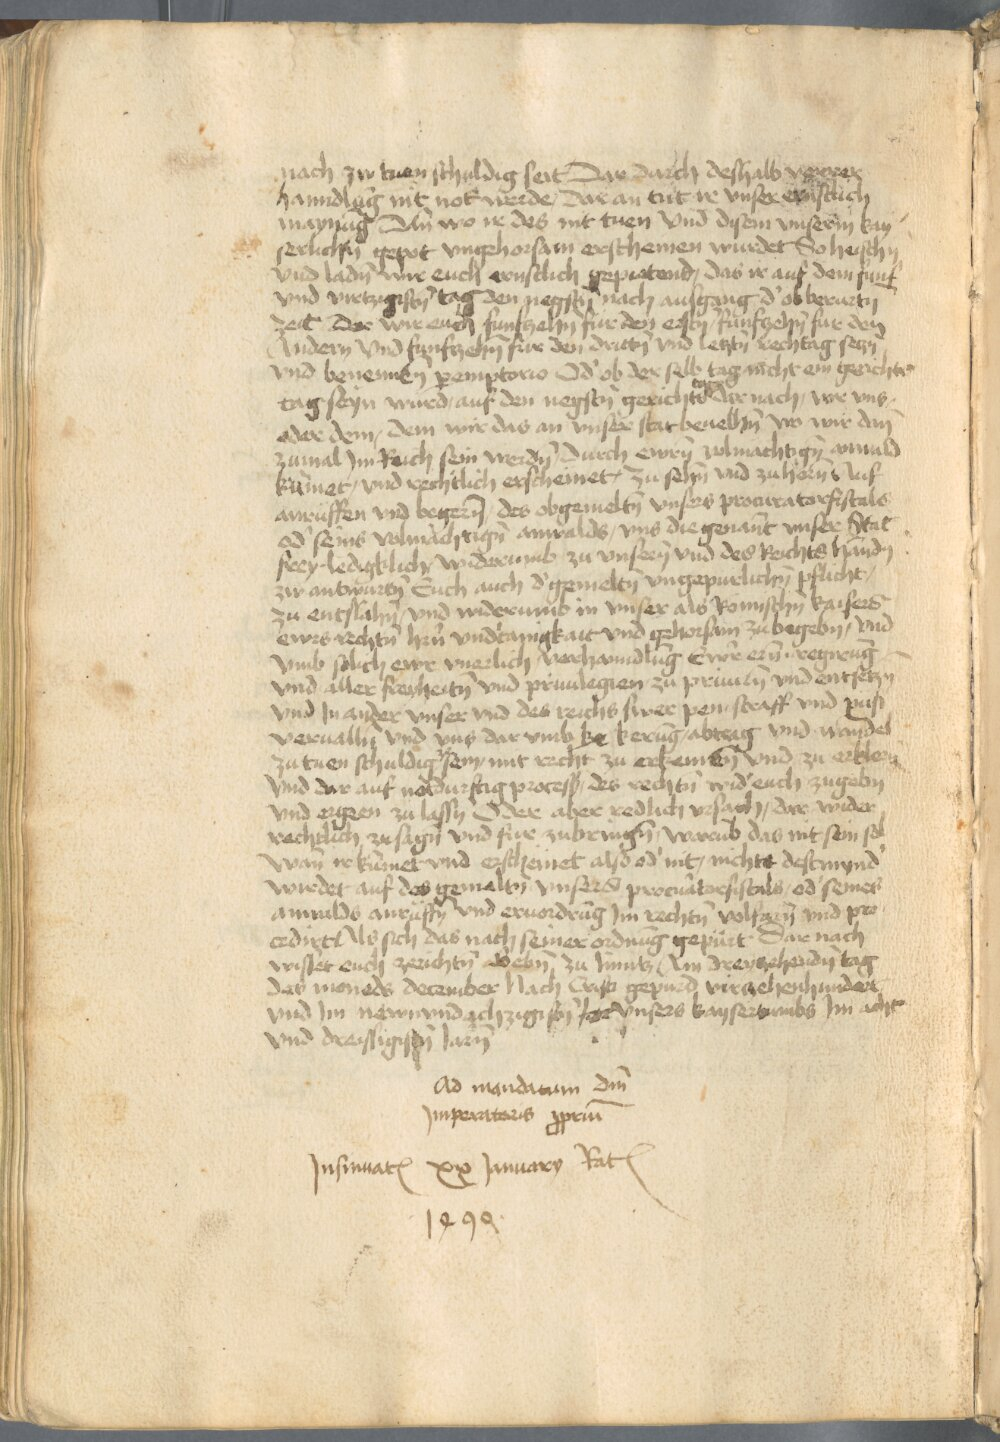 nach zw tuen schuldig seit Dar durch deshalb verrer
hanndlūg nit not werde, Dar an tut ir vnser ernstlich
maynūg Dān wo ir des nit tuen Vnd disem vnserm kay
serlichn̄ gepot vngehorsam erscheinen wurdet So heischn̄
vnd ladn̄ wir euch ernstlich gepietend, das ir auf dem funf
vnd virtzigistn̄ tag den negstn̄ nach ausgang d' ob berurtn̄
zeit Der wir euch funfzehn̄ fur den erstn̄ funfzehn̄ fur den
Andern Vnd funfzehn̄ fur den drittn̄ vnd letztn̄ rechtag setzn̄
vnd benennen peremptorio Od' ob der selb tag nicht ein gerichts
tag seyn wurd, auf den negstn̄ gerichts tag Dar nach, vor vns,
oder dem, dem wir das an vnser stat beuelhn̄ wo wir dan̄
zumal Im Reich sein werdn̄ Durch ewrn̄ volmachtign̄ anwald
kūmet, vnd rechtlich erscheinet, Zu sehn̄ vnd zu hörn̄ Auf
anruffen vnd begern̄, des obgemeltn̄ vnsers procuratorfiscals
od' seins volmächtign̄ anwalds, vns die genan̄t vnser Stat
frey ledigklich widerumb zu vnsern̄ vnd des Reichs handn̄
zw antwurtn̄ Euch auch d' gemeltn̄ vngepurlichn̄ pflicht,
zu entslahn̄, vnd widerumb in vnser als Romischn̄ kaisers
ewrs rechtn̄ hrn̄ vnd'tanigkait vnd gehorsam zu begebn, vnd
vmb solich ewr vnerlich verhanndlūg Ewr ern̄ regirūg
vnd aller freyheitn̄ vnd priuilegien zu priuirn̄ vnd entsetzn̄
vnd In ander vnser vnd des reichs swer pen straff vnd pus
veruallen vnd vns dar vmb ke kerūg, abtrag vnd wandel
zu tuen schuldig sein, mit recht zu erkennen vnd zu erklern̄
Vnd dar auf notdurftig process, des rechtn̄ wid' euch zugebn
vnd ergeen zu lassn̄ Oder aber redlich vrsach, dar wider
rechtlich zu sagn̄ vnd fur zubringn̄, warūb das nit sein sol
Wan̄ ir kūmet vnd erscheinet also od' nit, nichts destmynd'
wirdet auf des gemeltn̄ vnsers procuratorfiscals, od' seines
anwalds anruffn̄ vnd eruordrūg Im rechtn̄ volfarn̄ vnd pro
cedirt Als sich das nach seiner ordnūg gepurt Dar nach
wisset euch zerichtn̄ Gebn̄ zu lynntz Am dreyzehendn̄ tag
des moneds december Nach Crist gepurd virzehenhundert
vnd Im newnvndachzigistn̄ Vnsers kaysertumbs Im acht
vnd dreissigistn̄ Iarn̄
Ad mandatum dm̄
Imperatoris ppriū
Insinuat xx January Rat
1490